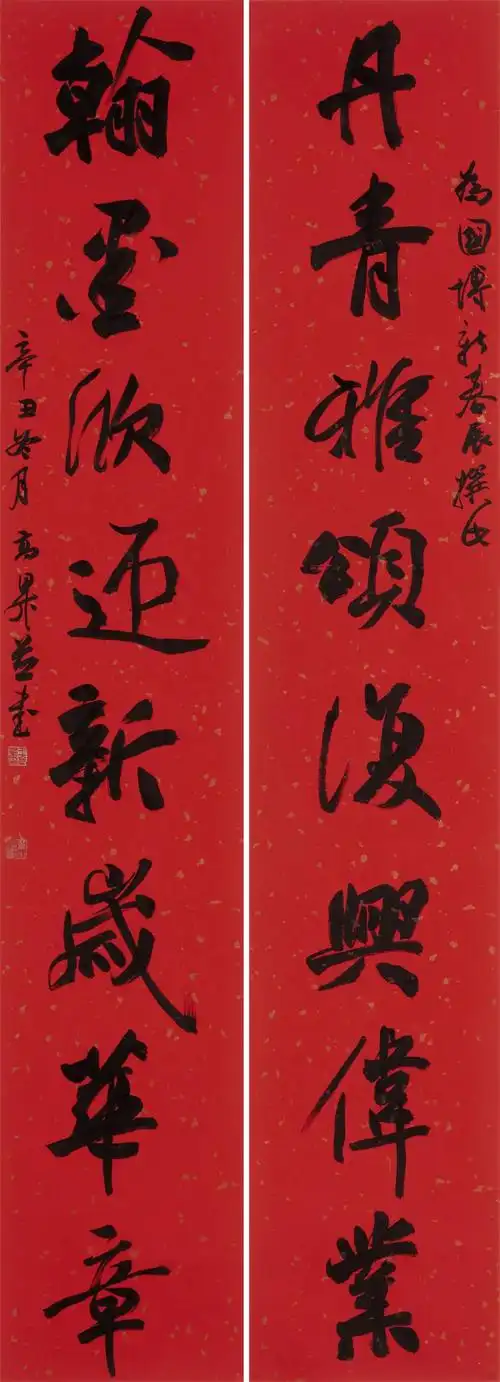 為國博新春展撰句
丹青雅頌復興偉業
翰墨欣迎新歲華章
辛丑冬月 高 並書